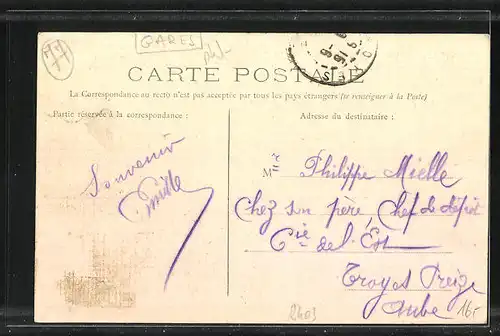 77
GARES
CARTE POSTALE
La Correspondance au recto n'est pas acceptée par tous les pays étrangers (se renseigner à la Poste)
Partie réservée à la correspondance :
Adresse du destinataire :
Souvenir
Mlle Philippe Mielle
Chez son père, Chef de dépôt
Cie de l'Est
Troyes Preize
Aube
2403
16r